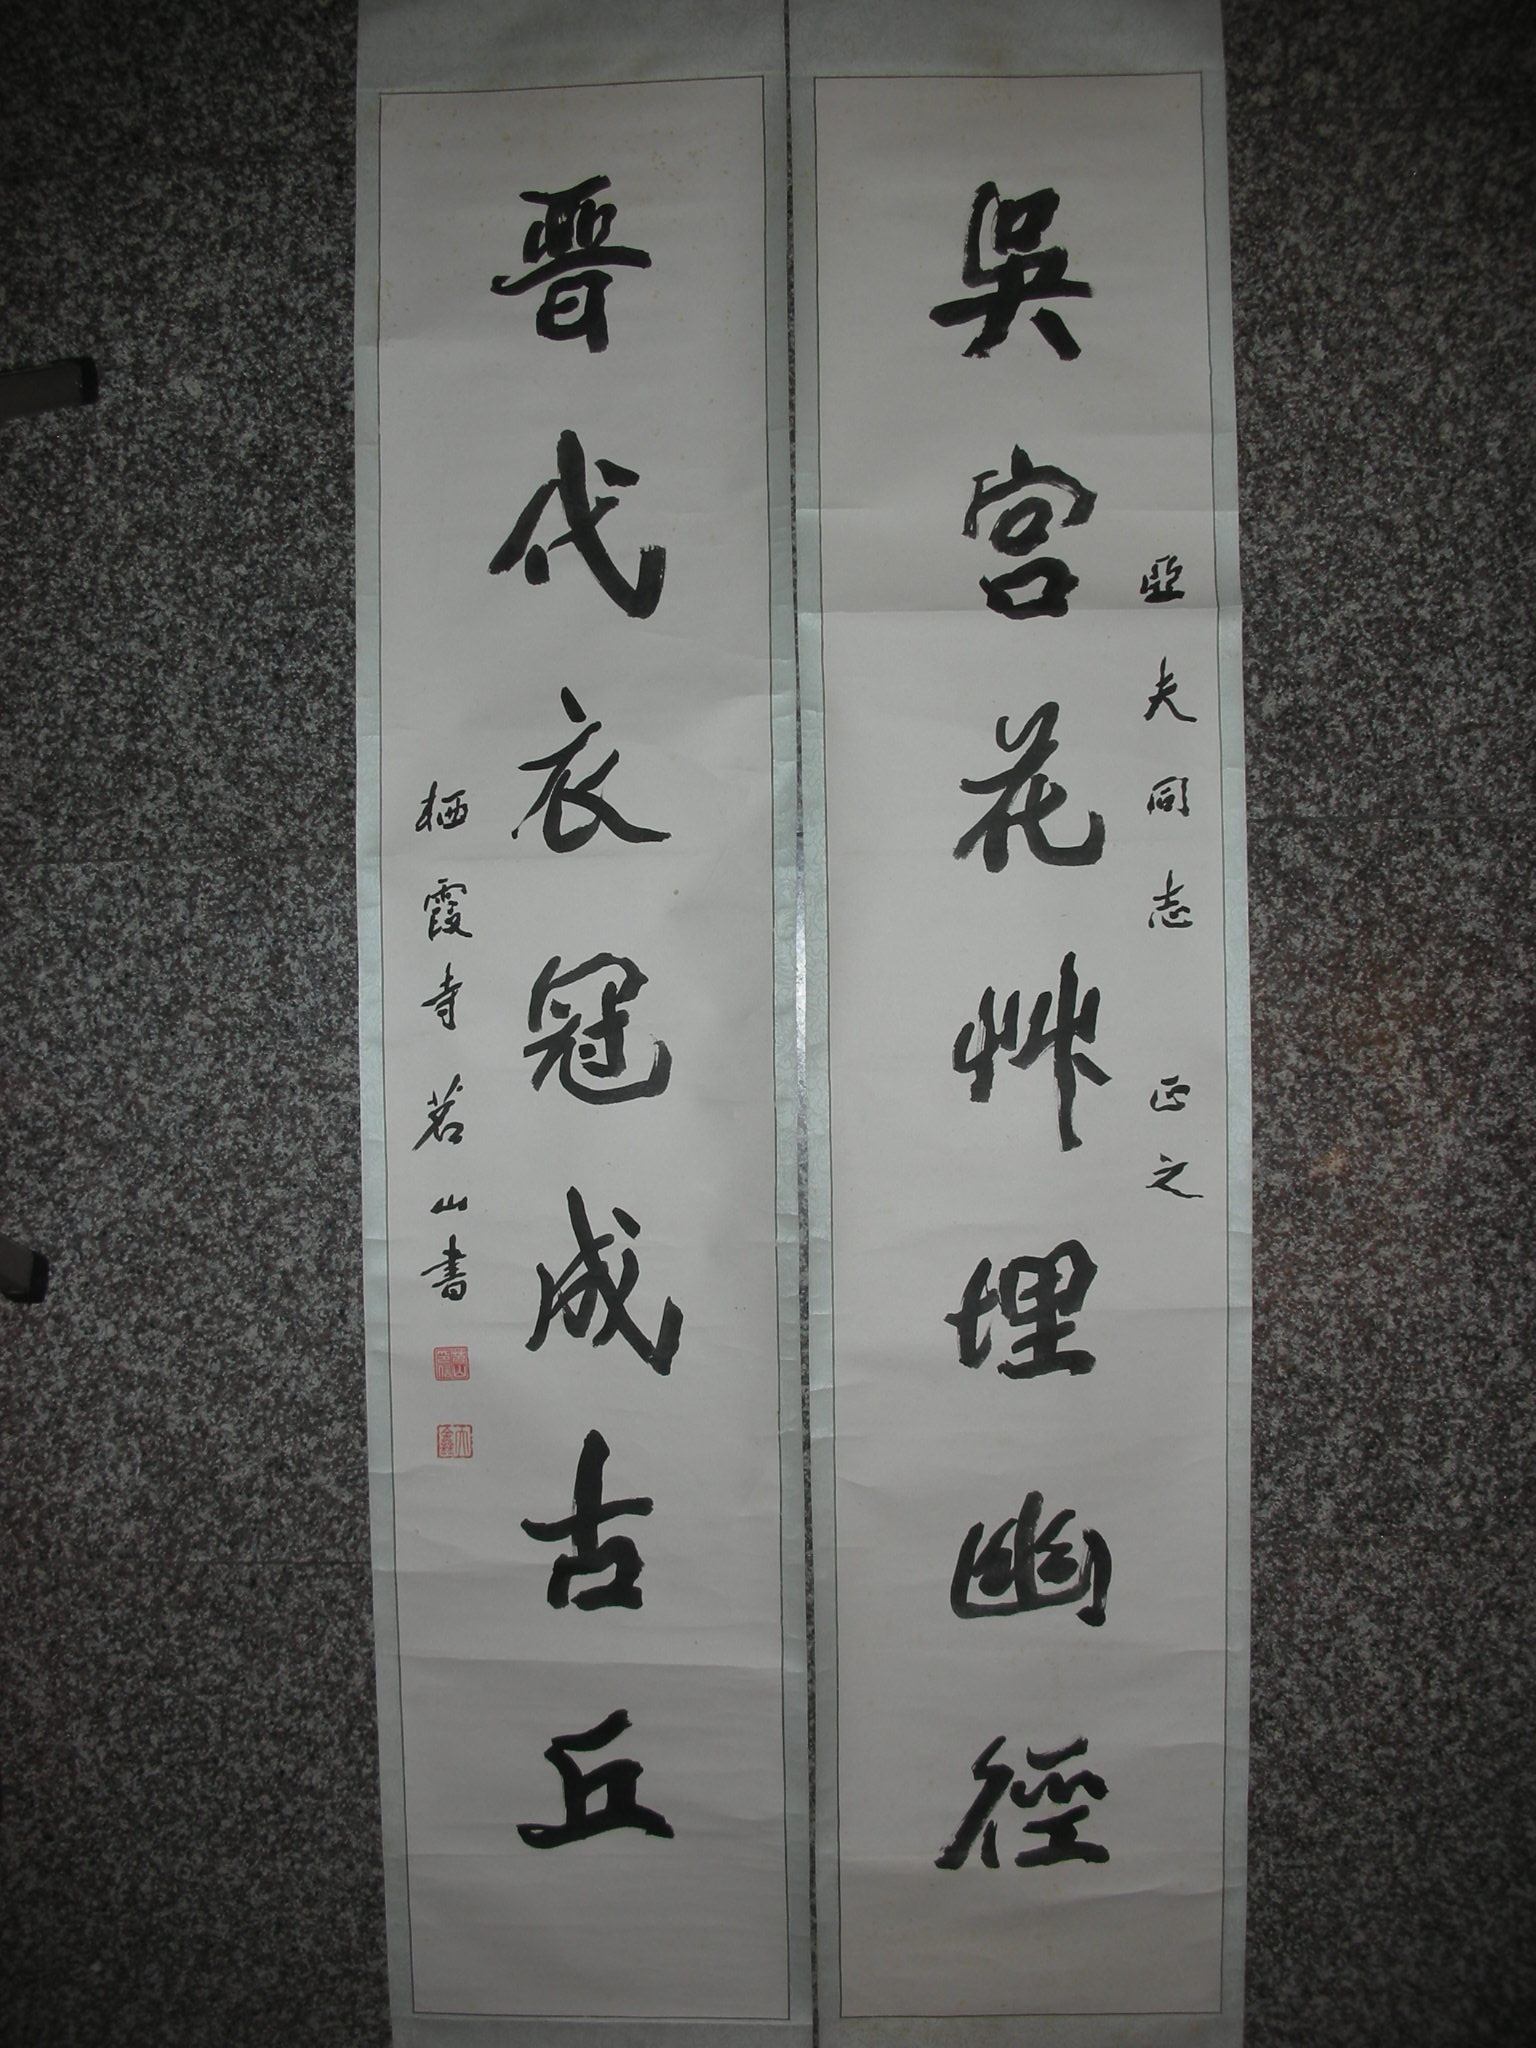 亞夫同志 正之
吳宮花艸埋幽徑
晉代衣冠成古丘
栖霞寺茗山書